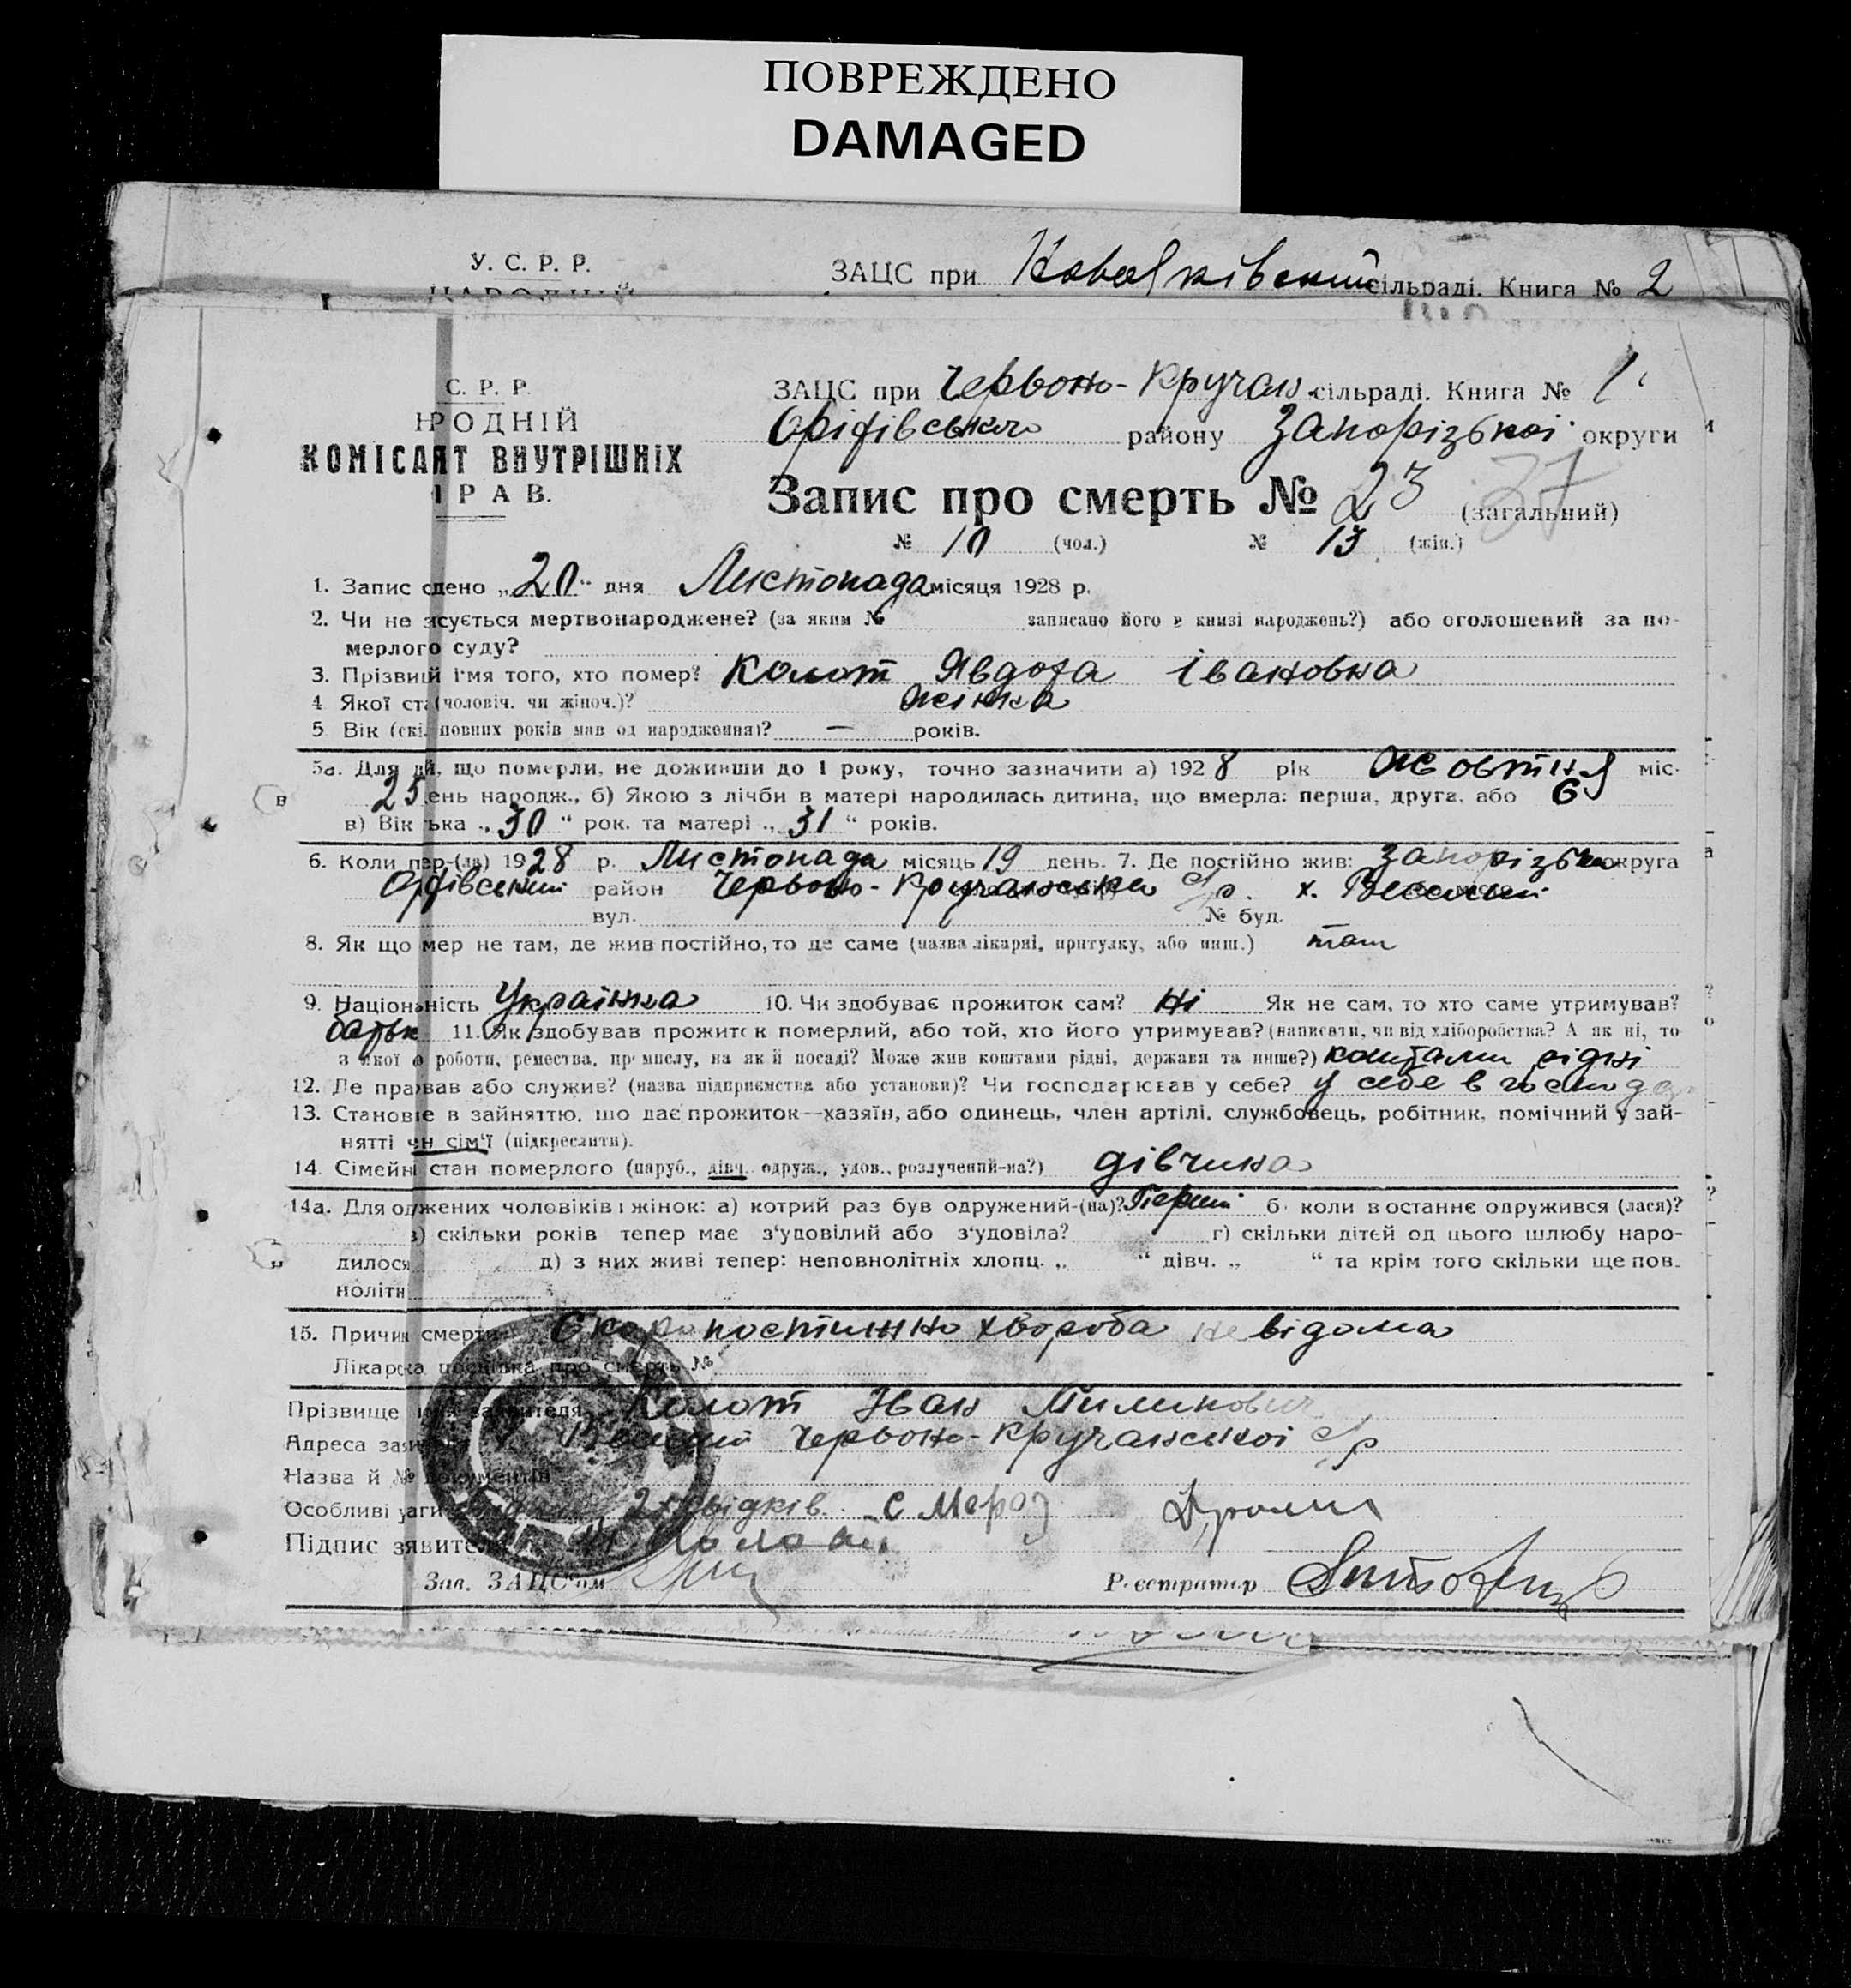 ПОВРЕЖДЕНО
DAMAGED
У. С. Р. Р.
ЗАЦС при сільраді. Книга № 2
С. Р. Р.
РОДНІЙ
КОМІСАРІЯТ ВНУТРІШНІХ
РАВ.
ЗАЦС при Червоно-Кручан. сільраді. Книга № 1
Оріхівського району Запорізької округи
Запис про смерть № 23 (загальний) 37
№ 10 (чол.) № 13 (жін.)
1. Запис с дено „20“ дня Листопада місяця 1928 р.
2. Чи не ясується мертвонароджене? (за яким № записано його в книзі народжень?) або оголошений за по-
мерлого суду?
3. Прізвищ й імя того, хто помер? Колот Явдоха Івановна
4 Якої ста (чоловіч. чи жіноч.)? жінка
5 Вік (скі. повних років мав од народження)? — років.
5а. Для ді й, що померли, не доживши до 1 року, точно зазначити а) 1928 рік Жовтня міс.
25 ень народж., б) Якою з лічби в матері народилась дитина, що вмерла: перша, друга, або 6
в) Вік ька „30“ рок. та матері „31“ років.
6. Коли п ер-(ла) 1928 р. Листопада місяць 19 день. 7. Де постійно жив: Запорізька округа
Оріхівський район Червоно-Кручанська с/р. х. Веселий
вул. № буд.
8. Як що мер не там, де жив постійно, то де саме (назва лікарні, притулку, або инш.) там
9. Націон ність Українка 10. Чи здобуває прожиток сам? Ні Як не сам, то хто саме утримував?
батьк 11. Як здобував прожиток померлий, або той, хто його утримував? (написати, чи від хліборобства? А як ні, то
з якої роботи, ремества, промислу, на якій посаді? Може жив коштами рідні, держави та инше?) коштами рідні
12. Де пра вав або служив? (назва підприємства або установи)? Чи господарював у себе? у себе в господа
13. Станов в зайняттю, що дає прожиток—хазяїн, або одинець, член артілі, службовець, робітник, помічний у зай-
нятті чн сім'ї (підкреслити).
14. Сімейн стан померлого (паруб., дівч. одруж., удов., розлучений-на?) дівчина
14а. Для од жених чоловіків і жінок: а) котрий раз був одружений-(на)? Перший б. коли востаннє одружився (лася)?
в) скільки років тепер має з'удовілий або з'удовіла? г) скільки дітей од цього шлюбу наро-
дилося д) з них живі тепер: неповнолітніх хлопц. „ “ дівч. „ “ та крім того скільки ще пов-
нолітн
15. Причин смерти Скоропостижно хвороба не відома
Лікарська посвідка про смерть №
Прізвище імя заявителя Колот Іван
Адреса заяв Веселий Червоно-Кручанської с/р
Назва й № документів
Особливі уаги 2х свідків. С Мороз
Підпис зявителя Колот
Зав. ЗАЦС'ом Реєстратор